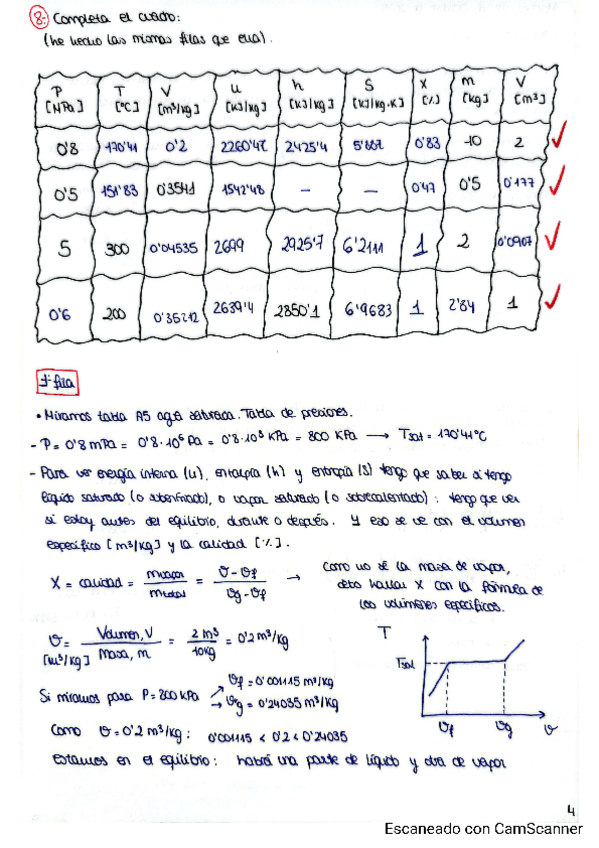 8. Completa el cuadro:
(he hecho las mismas filas que ella).
P [MPa] T [°C] V [m³/kg] u [KJ/kg] h [KJ/kg] S [KJ/kg·K] X [%] m [kg] V [m³]
0'8 170'41 0'2 2260'42 2425'4 5'887 0'83 10 2 ✓
0'5 151'83 0'3541 1542'48 – – 0'47 0'5 0'177 ✓
5 300 0'04535 2699 2925'7 6'2111 1 2 0'0907 ✓
0'6 200 0'35212 2639'4 2850'1 6'9683 1 2'84 1 ✓
1ª fila
• Miramos tabla A5 agua saturada. Tabla de presiones.
- P = 0'8 mPa = 0'8·10⁶ Pa = 0'8·10³ KPa = 800 KPa → Tsat = 170'41°C
- Para ver energía interna (u), entalpía (h) y entropía (S) tengo que saber si tengo
líquido saturado (o subenfriado), o vapor saturado (o sobrecalentado): tengo que ver
si estoy antes del equilibrio, durante o después. Y eso se ve con el volumen
específico [m³/kg] y la calidad [%].
X = calidad = mvapor / mtotal = (v - vf) / (vg - vf) → Como no sé la masa de vapor,
debo hallar X con la fórmula de
los volúmenes específicos.
v [m³/kg] = Volumen, V / Masa, m = 2 m³ / 10kg = 0'2 m³/kg
T
Tsat
vf vg v
Si miramos para P = 800 kPa → vf = 0'00115 m³/kg
→ vg = 0'24035 m³/kg
Como v = 0'2 m³/kg: 0'00115 < 0'2 < 0'24035
Estamos en el equilibrio: habrá una parte de líquido y otra de vapor
4
Escaneado con CamScanner